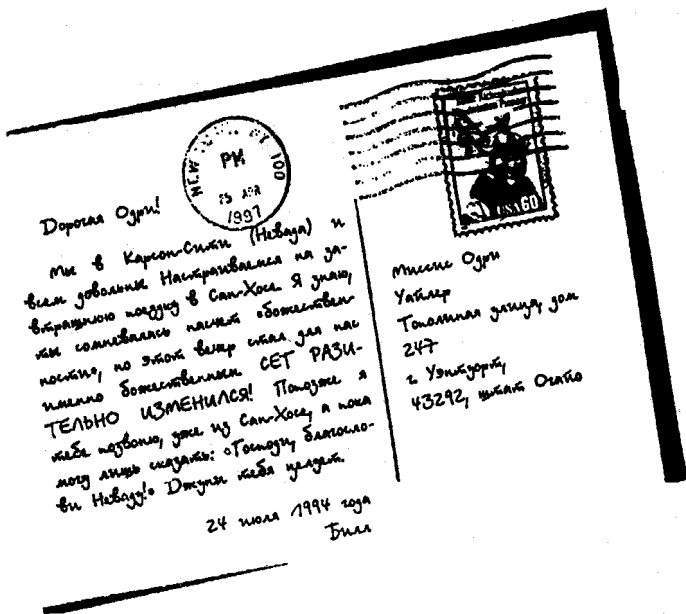 PM
APR
1997
USA60
Дорогая Одри!
Мы в Карсон-Сити (Невада) и
всем довольны. Настраиваемся на за-
втрашнюю поездку в Сан-Хосе. Я знаю,
ты сомневалась насчет «божествен-
ности», но этот вечер стал для нас
именно божественным. СЕТ РАЗИ-
ТЕЛЬНО ИЗМЕНИЛСЯ! Попозже я
тебе позвоню, уже из Сан-Хосе, а пока
могу лишь сказать: «Господи, благосло-
ви Неваду!» Джуни тебя целует.
24 июля 1994 года
Билл
Миссис Одри
Уайлер
Тополиная улица, дом
247
г. Уэнтуорт,
43292, штат Огайо